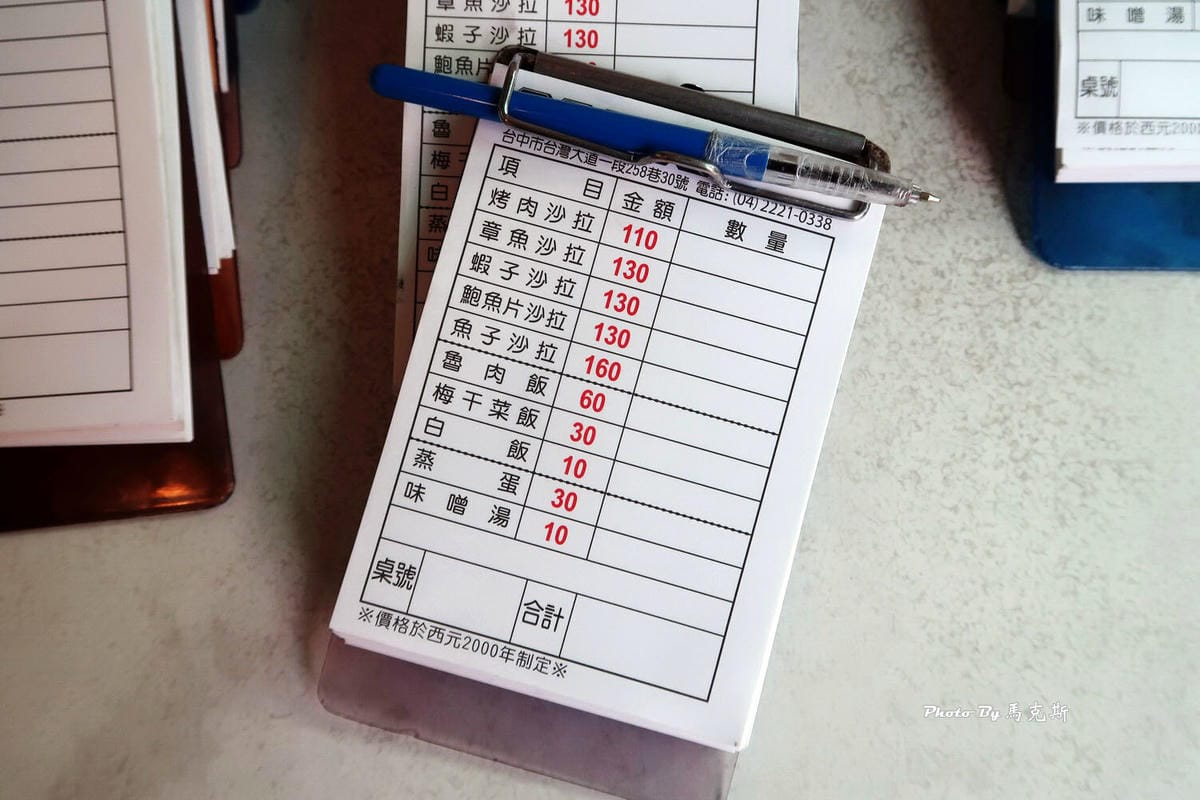 章魚沙拉 130
蝦子沙拉 130
鮑魚片
魯
梅
白
蒸
味
味噌湯
桌號
※價格於西元2000
台中市台灣大道一段258巷30號 電話:(04)2221-0338
項目 金額 數量
烤肉沙拉 110
章魚沙拉 130
蝦子沙拉 130
鮑魚片沙拉 130
魚子沙拉 160
魯肉飯 60
梅干菜飯 30
白飯 10
蒸蛋 30
味噌湯 10
桌號 合計
※價格於西元2000年制定※
Photo By 馬克斯